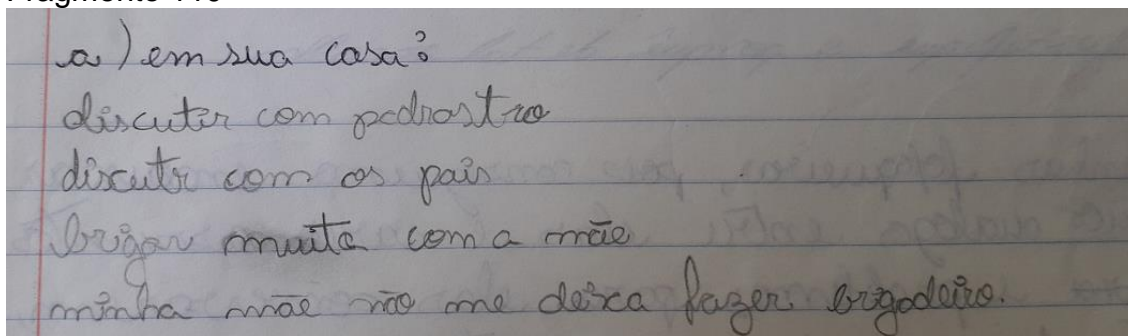 a) em sua casa?
discutir com padrastro
discutr com os pais
brigar muita com a mãe
minha mãe não me deixa fazer brigadeiro.